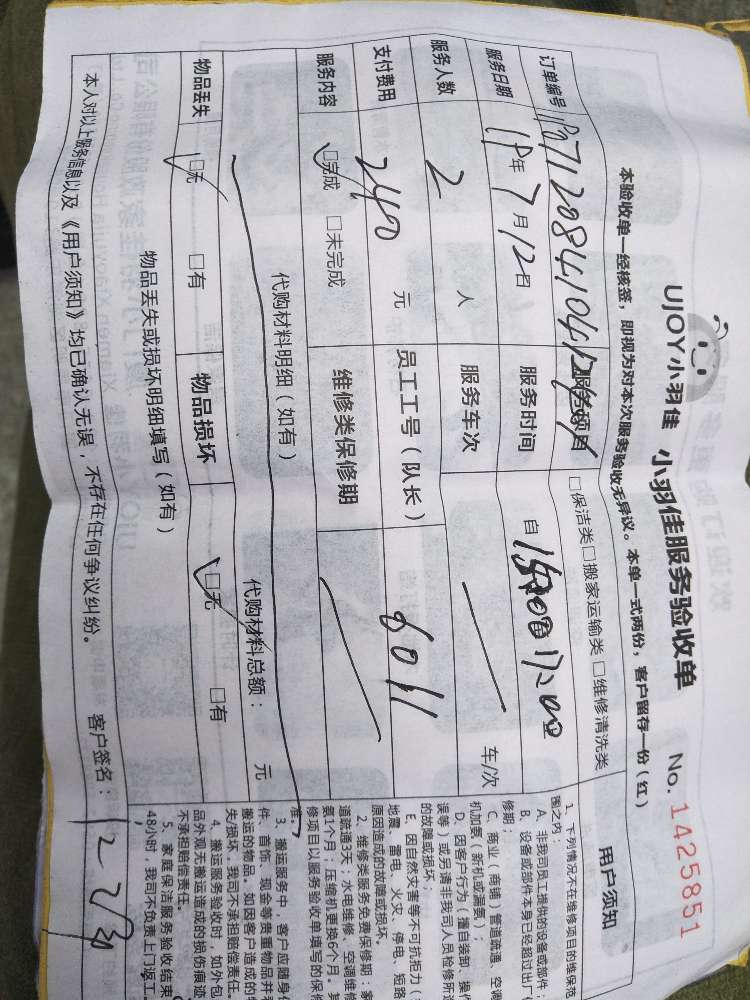 UJOY小羽佳 小羽佳服务验收单 No. 1425851
本验收单一经核签，即视为对本次服务验收无异议。本单一式两份，客户留存一份（红）
订单编号 服务项目 □保洁类□搬家运输类□维修清洗类
服务日期 19年7月12日 服务时间 自
服务人数 2 人 服务车次 车/次
支付费用 240 元 员工工号（队长） 6011
服务内容 □完成 □未完成 维修类保修期
代购材料明细（如有） 代购材料总额： 元
物品丢失 □无 □有 物品损坏 □无 □有
物品丢失或损坏明细填写（如有）
本人对以上服务信息以及《用户须知》均已确认无误，不存在任何争议纠纷。 客户签名：
用户须知
1、下列情况不在维修项目的维保范
围之内：
A、非我司员工提供的设备或部件
B、设备或部件本身已经超过出厂
修期；
C、商业（商铺）管道疏通、空调
机加氨（新机或漏氨）；
D、因客户行为（擅自装卸、操作
误等）或另请非我司人员检修所造
的故障或损坏；
E、因自然灾害等不可抗拒力（
地震、雷电、火灾、停电、短路
原因造成的故障或损坏。
2、维修类服务免费保修期：家
道疏通3天；水电维修、空调维修
氨1个月；压缩机更换6个月。其
修项目以服务验收单填写的保修
准。
3、搬运服务中，客户应随身保
件、首饰、现金等贵重物品并看
搬运的物品。如因客户造成的物
失损坏，我司不承担赔偿责任。
4、搬运服务验收时，如外包
品外观无搬运造成的损伤痕迹
不承担赔偿责任。
5、家庭保洁服务验收结束
48小时，我司不负责上门返工